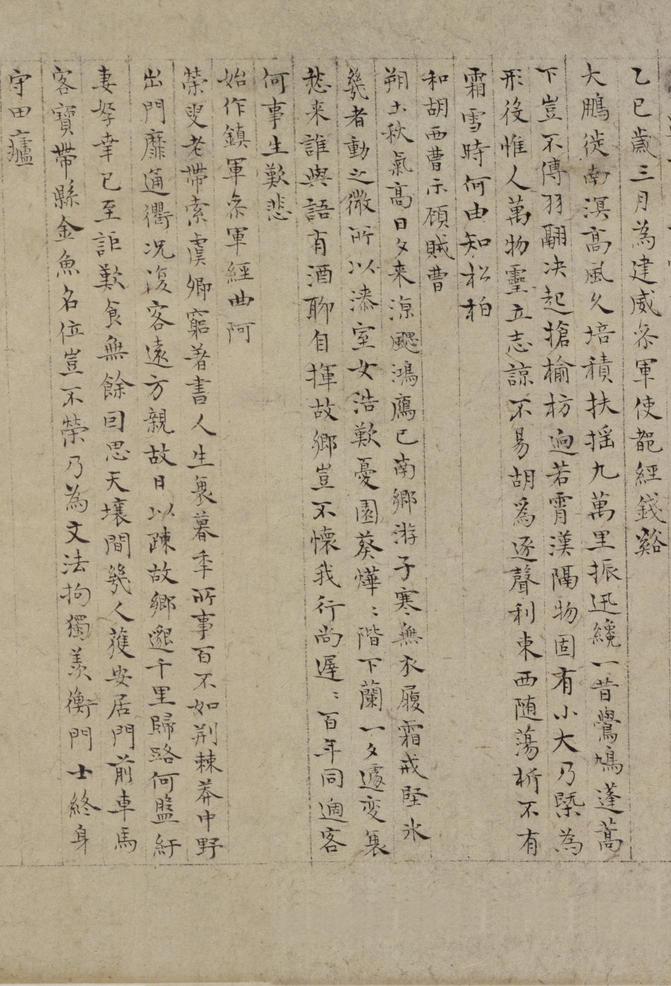 乙巳歲三月為建威叅軍使都經錢谿
大鵬徙南溟高風久培積扶搖九萬里振迅纔一昔鷽鳩蓬蒿
下豈不傳羽翮決起搶榆枋迥若霄漢隔物固有小大乃槩為
形役惟人萬物靈立志諒不易胡為逐聲利東西隨蕩析不有
霜雪時何由知松柏
和胡西曹示顧賊曹
朔土秋氣高日夕来涼颸鴻鴈已南鄉游子寒無衣履霜戒堅氷
幾者動之微所以漆室女浩歎憂園葵燁:階下蘭一夕遽变衰
愁来誰與語有酒聊自揮故鄉豈不懷我行尚遲:百年同適客
何事生歎悲
始作鎮軍叅軍經曲阿
榮叟老帶索虞卿窮著書人生衰暮年所事百不如荆棘莽中野
出門靡通衢况復客遠方親故日以踈故鄉邈千里歸路何盤紆
妻孥幸已至詎歎食無餘回思天壤間幾人獲安居門前車馬
客寶帶縣金魚名位豈不榮乃為文法拘獨羡衡門士終身
守田廬